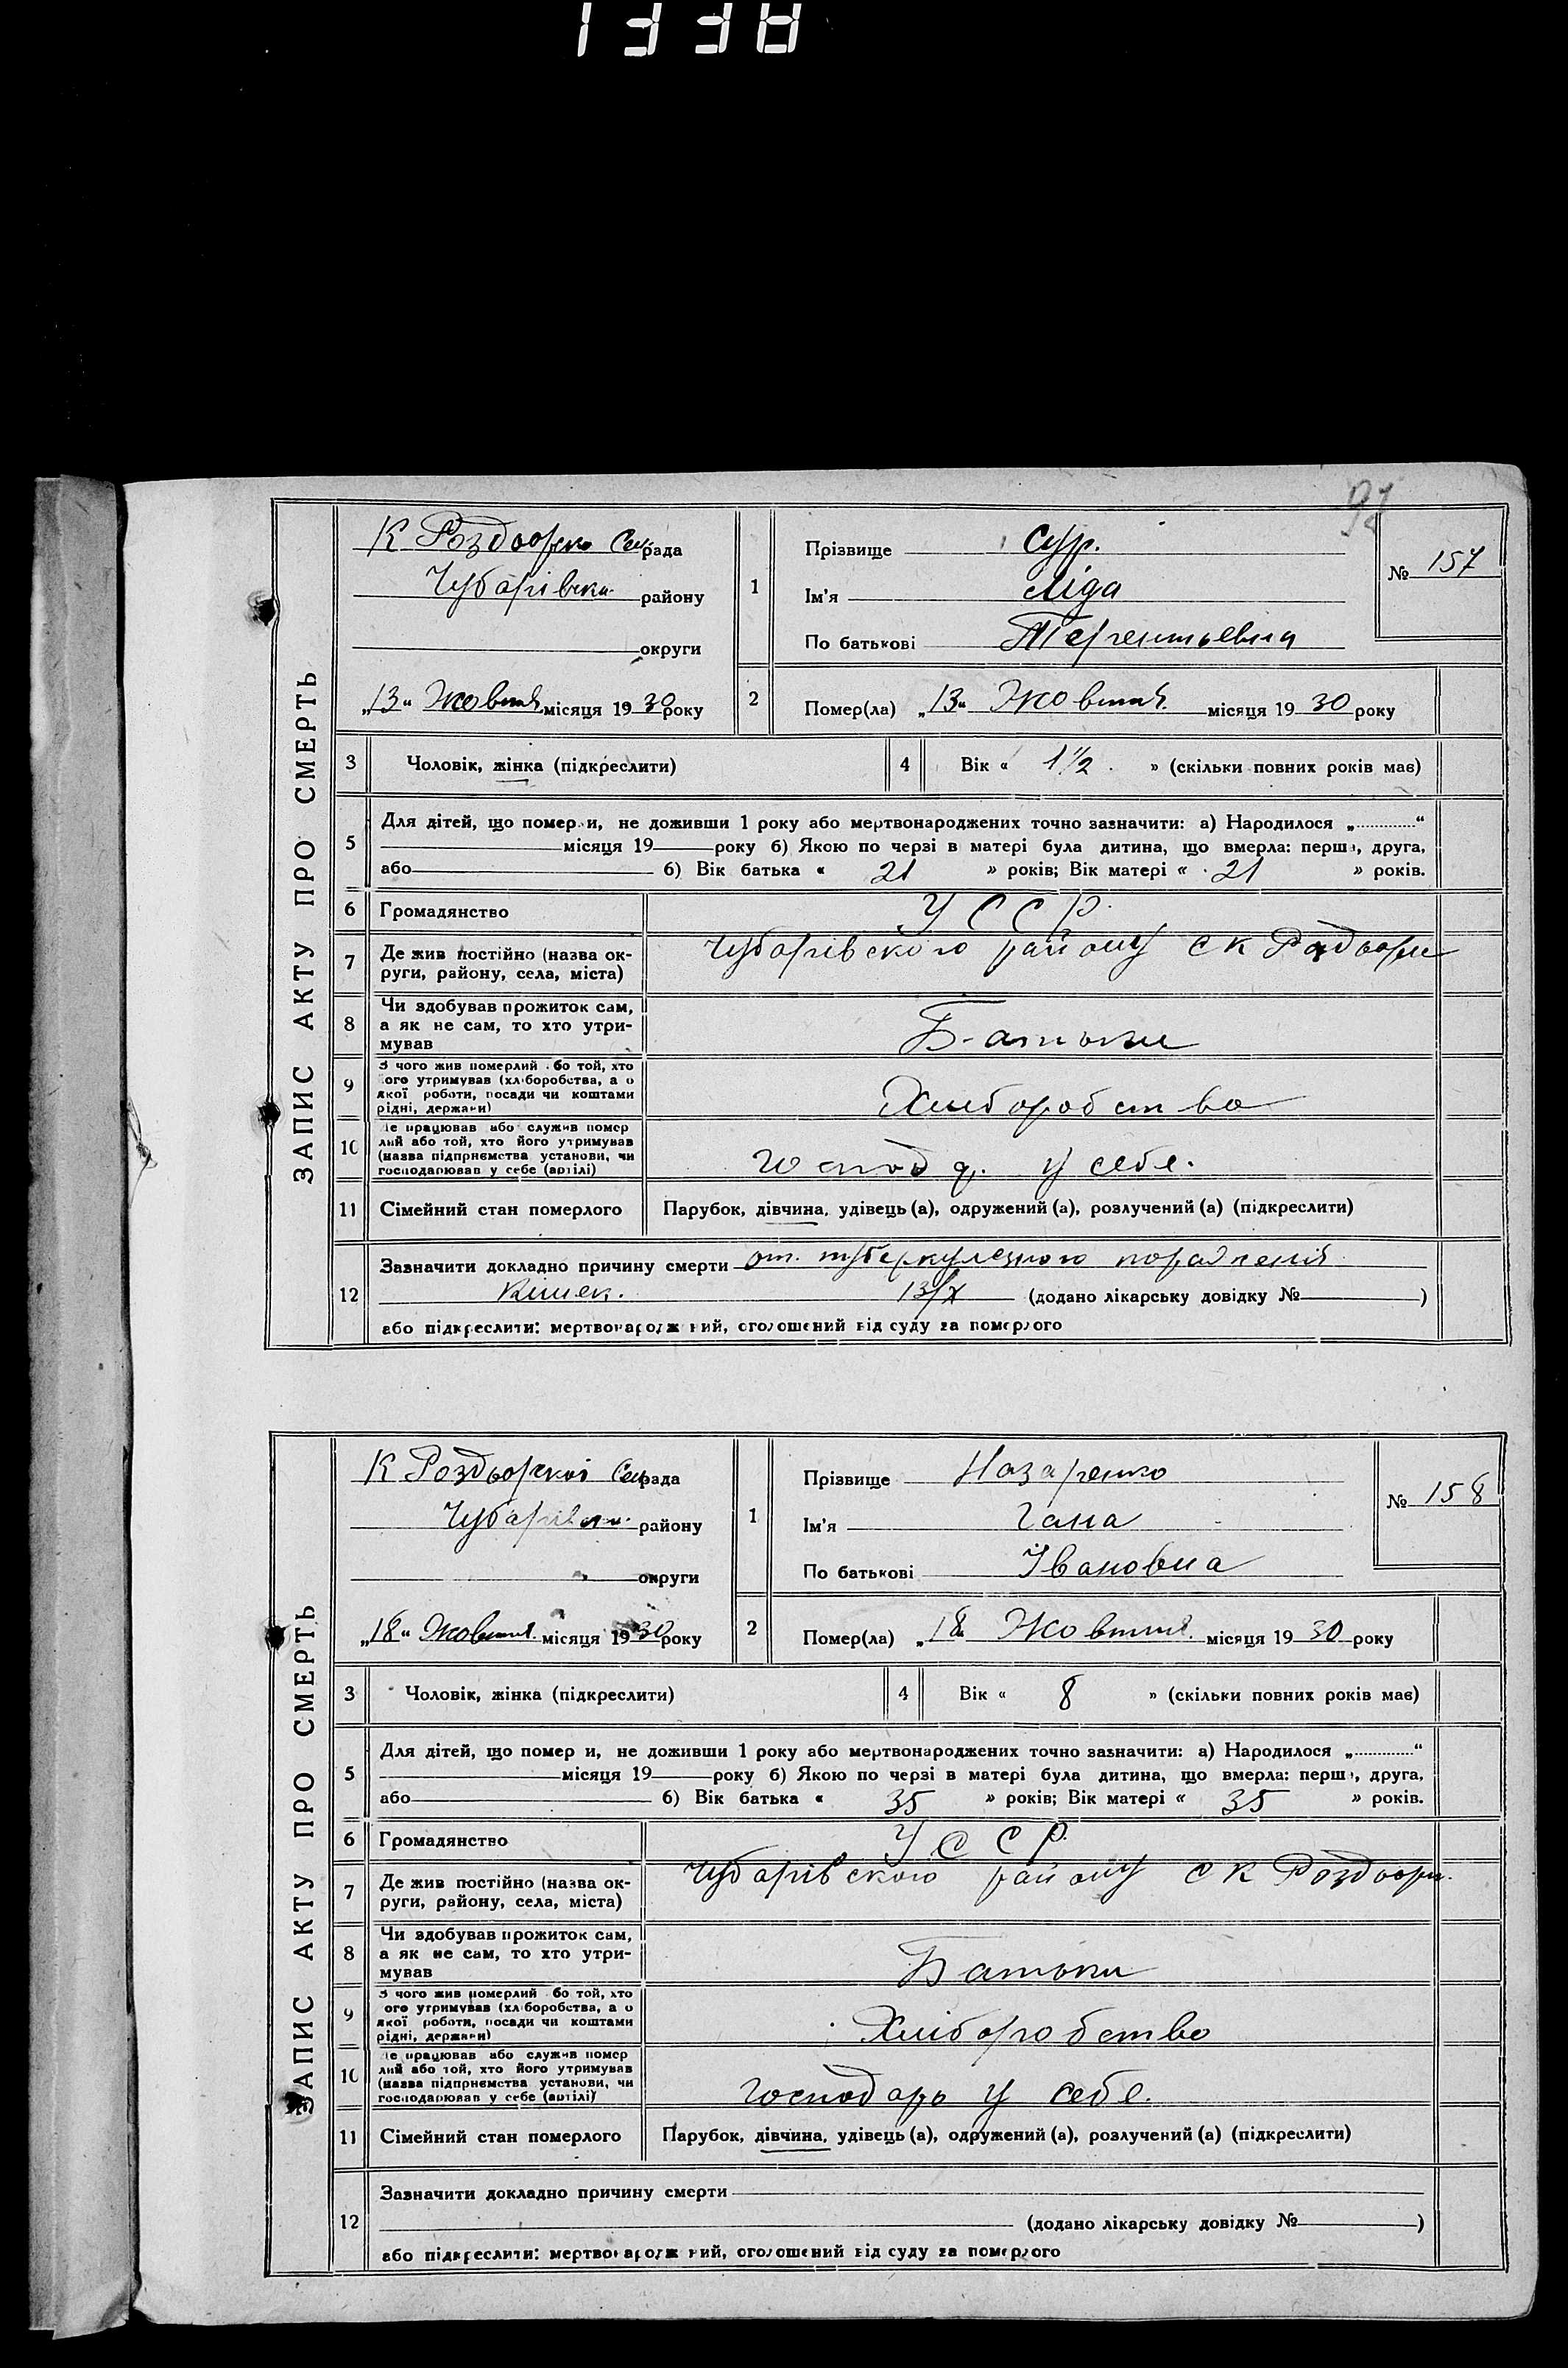 1338
92
ЗАПИС АКТУ ПРО СМЕРТЬ
К Роздорско Сел рада
Чубарівськ. району
округи
„13“ Жовтня місяця 1930 року
1
Прізвище Сур.
Ім'я Ліда
По батькові Терентьевна
№ 157
2
Помер(ла) „13“ Жовтня місяця 1930 року
3 Чоловік, жінка (підкреслити)
4 Вік « 1½ » (скільки повних років має)
5
Для дітей, що помер и, не доживши 1 року або мертвонароджених точно зазначити: а) Народилося „ “
місяця 19 року б) Якою по черзі в матері була дитина, що вмерла: перш , друга,
або б) Вік батька « 21 » років; Вік матері « 21 » років.
6 Громадянство У С С Р.
7 Де жив постійно (назва ок-
руги, району, села, міста)
Чубарівского району с К Раздори
8
Чи здобував прожиток сам,
а як не сам, то хто утри-
мував
Батьки
9
З чого жив померлий бо той, хто
ого утримував (хліборобства, а о
якої роботи, посади чи коштами
рідні, держави)
Хліборобство
10
е працював або служив помер
лий або той, хто його утримував
(назва підприємства установи, чи
господарював у себе (артілі)
Господ. у себе.
11 Сімейний стан померлого Парубок, дівчина, удівець (а), одружений (а), розлучений (а) (підкреслити)
12
Зазначити докладно причину смерти от туберкулезного пораженія
Кишек. 13/X (додано лікарську довідку № )
або підкреслити: мертвонародж ний, оголошений від суду за померлого
ЗАПИС АКТУ ПРО СМЕРТЬ
К Роздорскоі Сел рада
Чубарівськ. району
округи
„18“ Жовтня місяця 1930 року
1
Прізвище Назаренко
Ім'я Гана
По батькові Івановна
№ 158
2
Помер(ла) „18“ Жовтня місяця 1930 року
3 Чоловік, жінка (підкреслити)
4 Вік « 8 » (скільки повних років має)
5
Для дітей, що помер и, не доживши 1 року або мертвонароджених точно зазначити: а) Народилося „ “
місяця 19 року б) Якою по черзі в матері була дитина, що вмерла: перш , друга,
або б) Вік батька « 35 » років; Вік матері « 35 » років.
6 Громадянство У С С Р.
7 Де жив постійно (назва ок-
руги, району, села, міста)
Чубарівского району с К Роздори.
8
Чи здобував прожиток сам,
а як не сам, то хто утри-
мував
Батьки
9
З чого жив померлий бо той, хто
ого утримував (хліборобства, а о
якої роботи, посади чи коштами
рідні, держави)
Хліборобство
10
е працював або служив помер
лий або той, хто його утримував
(назва підприємства установи, чи
господарював у себе (артілі)
Господарь у себе.
11 Сімейний стан померлого Парубок, дівчина, удівець (а), одружений (а), розлучений (а) (підкреслити)
12
Зазначити докладно причину смерти
(додано лікарську довідку № )
або підкреслити: мертвонародж ний, оголошений від суду за померлого